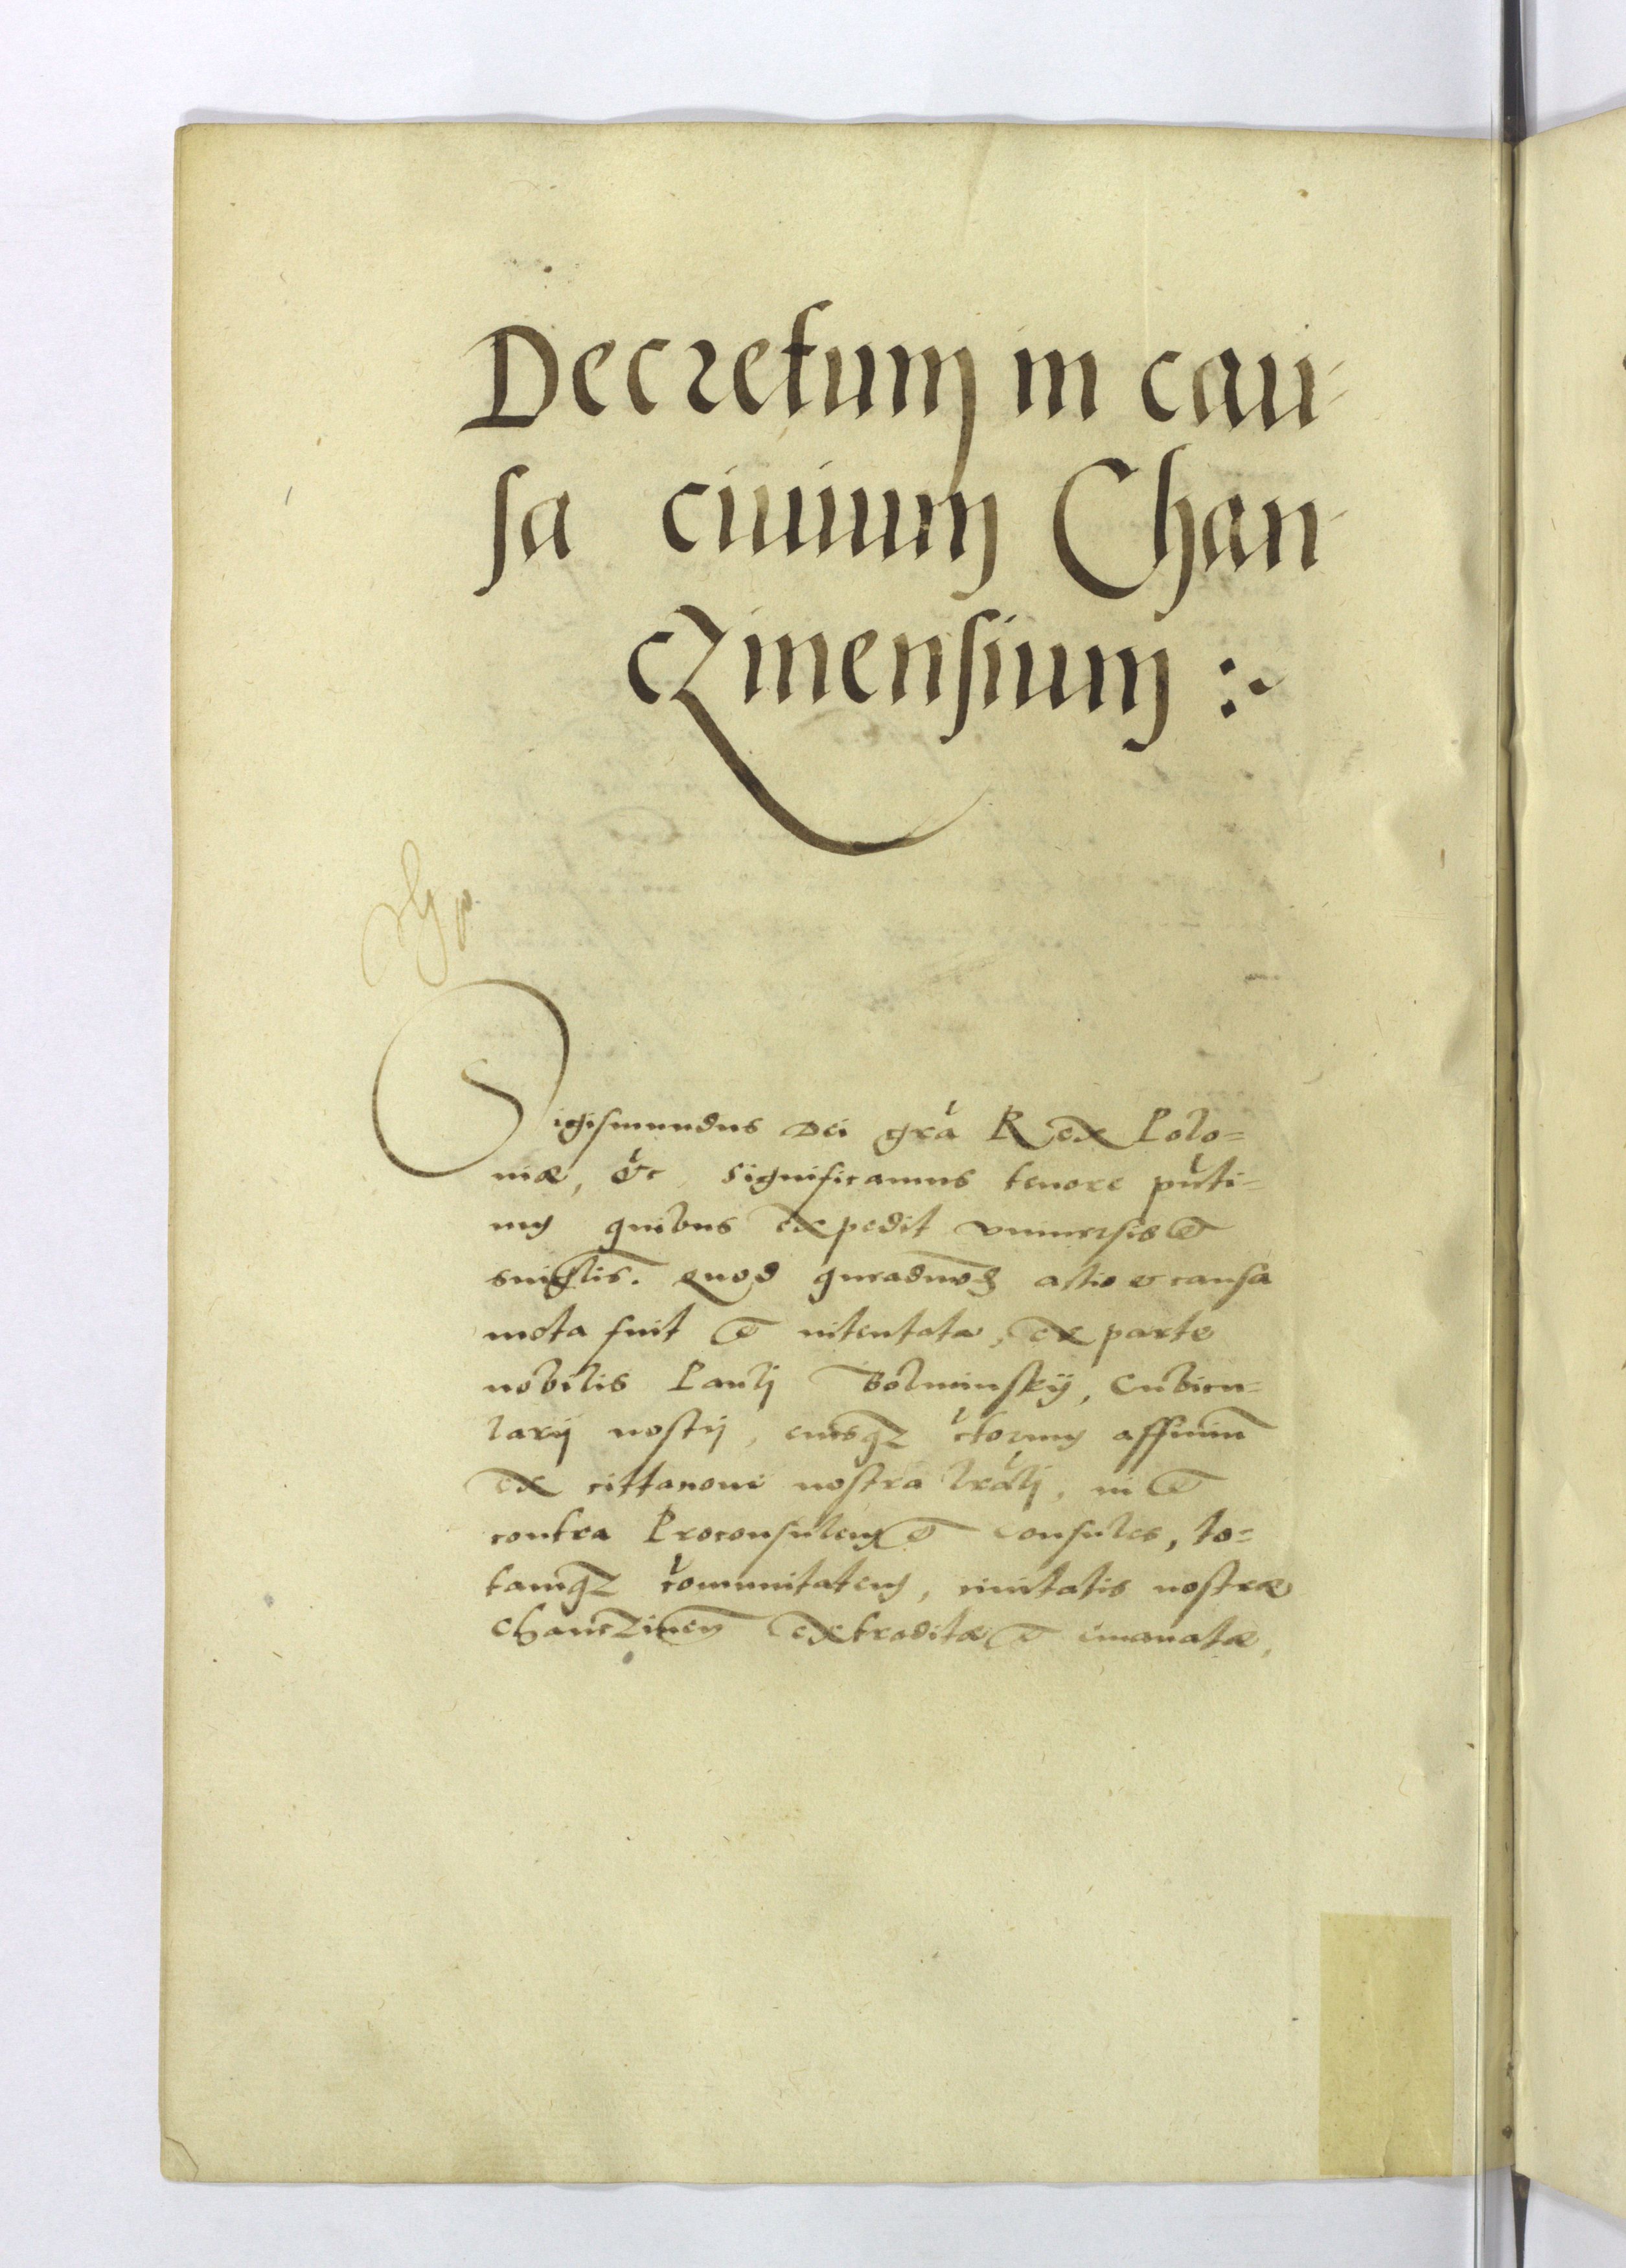 Decretum in cau-
sa ciuium Chan-
czinensium :~
Sigismundus Dei gra Rex Polo=
niæ, etc significamus tenore pnti=
um quibus expedit vniuersis et
singlis. Quod quemadmodu actio et causa
mota fuit et intentata, ex parte
nobilis Pauli Bolminskij, Cubicu=
larij nostrj, eiusqz ctorum affiniu
ex cittatione nostra lrali, in et
contra Proconsulem et Consules, to=
tamqz comunitatem, ciuitatis nostræ
Chanczinen extraditæ et emanatæ,